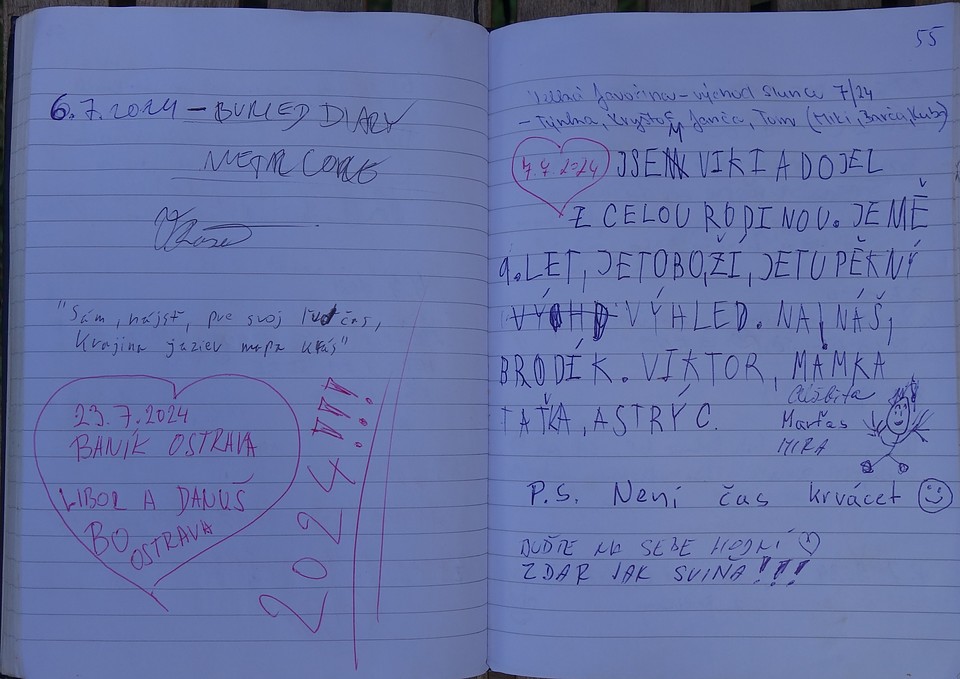 6.7.2024 – BURIED DIARY
METAL CORE
"Sám, nájsť, pre svoj čas,
Krajina jaziev mapa krás"
23.7.2024
BANÍK OSTRAVA
LIBOR A DANUŠ
BO OSTRAVA
2024!!!
55
Javořina – východ slunce 7/24
– Týnina, Kryštof, Janča, Tom (Miki, Barča, Kuba)
7.7.2024 JSEM VIKI A DOJEL
Z CELOU RODINOU. JEMĚ
9.LET, JETOBOŽÍ, JETU PĚKNÝ
VÝHLED. NAJ NÁŠ,
BRODÍK. VIKTOR, MAMKA
TAŤKA, ASTRÝC.
Alžběta
Marťas
MIRA
P.S. Není čas krvácet
BUĎTE NA SEBE HODNÍ
ZDAR JAK SVIŇA!!!